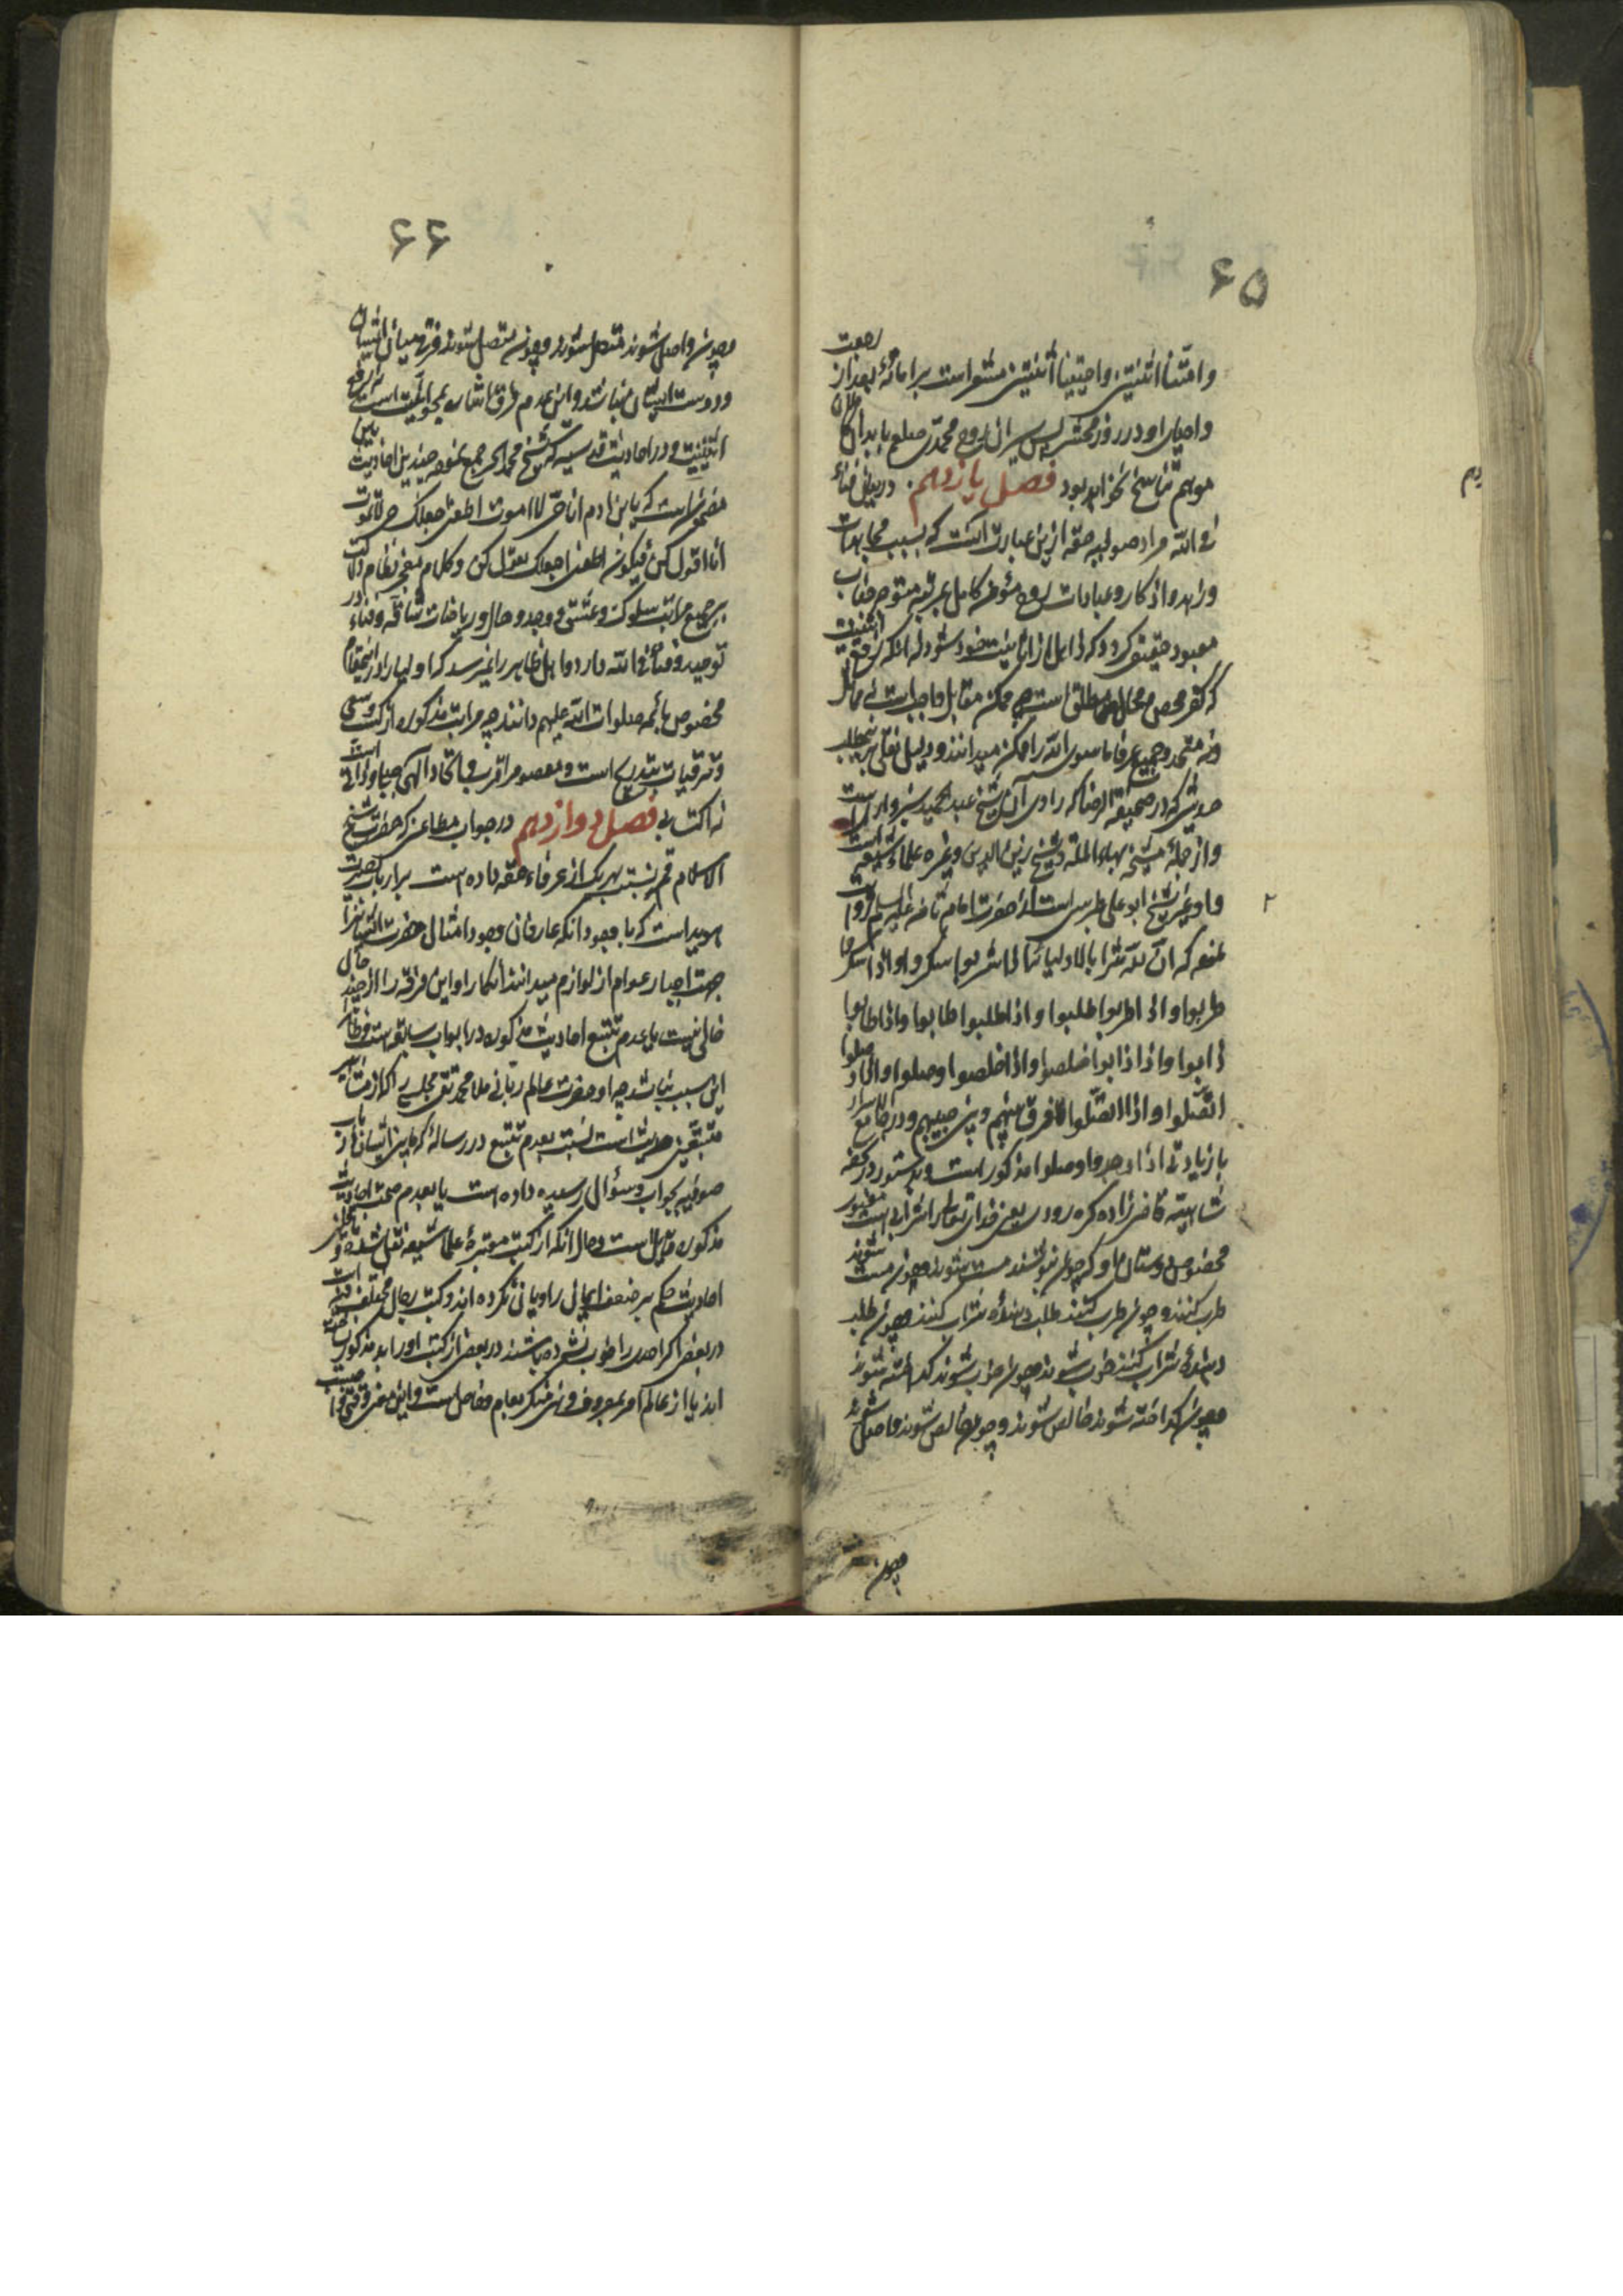 ۶۵
وامتنا اثنتین واحییتنا اثنتین مشعر است بر اماته بعد از رجعت
واحیای او در روز محشر پس سریان روح محمدی صلعم بابدان
موهم تناسخ نخواهد بود فصل یازدهم در بیان فناء
فی الله مراد صوفیه حقه ازین عبارت آنست که بسبب مجاهدات
وزهد واذکار وعبادات روح مؤمن کامل بمرتبه متوجه جناب
معبود حقیقی گردد که ذاهل از انانیت خود شود نه آنکه رفع اثنینیت
که کفر محض و محال مطلق است چه ممکن مقابل واجب است نه مماثل
ونه متحد وجمیع عرفا ماسوی الله را ممکن میدانند ودلیل نقلی بر مطلب
حدیثی که در صحیفة الرضا که راوی آن شیخ عبدالحمید سبزواری است
واز جمله شیخ بهاء الملة وشیخ زین الدین وغیره علماء شیعه است
وشیخ ابو علی طبرسی است از حضرت امام ثامن علیه السلام
که ان لله شرابا لاولیائه اذا شربوا سکروا واذا سکروا
طربوا واذا طربوا طلبوا واذا طلبوا طابوا واذا طابوا
ذابوا واذا ذابوا خلصوا واذا خلصوا وصلوا واذا وصلوا
اتصلوا واذا اتصلوا لا فرق بینهم وبین حبیبهم ودر جامع الاسرار
بازیادتی اذا وجدوا وصلوا مذکور است ودستور در تحفه
شاهیه قاضی زاده کره رودی یعنی خدای تعالی را شرابی است
مخصوص دوستان او که چون بنوشند مست شوند وچون مست شوند
طرب کنند وچون طرب کنند طلب شراب کنند وچون طلب
شراب کنند خوب شوند وچون خوب شوند گداخته شوند
وچون گداخته شوند خالص شوند وچون خالص شوند واصل شوند
وچون
۶۶
وچون واصل شوند متصل شوند وچون متصل شوند فرق میان ایشان
ودوست ایشان نباشد واین عدم فرق اشاره بمحو انیت است نه رفع
اثنینیت ودر احادیث قدسیه که شیخ محمد الحر جمع نموده چندین احادیث باین
مضمون است که یابن ادم انا حی لا اموت اطعنی اجعلک حی لا تموت
انا اقول کن فیکون اطعنی اجعلک تقول کن وکلام معجز نظام دلالت
بر جمیع مراتب سلوک وعشق ووجد وحال وریاضات شاقه وفناء در
توحید وفناء فی الله دارد واهل ظاهر را نمیرسد که اولیا را از این مقام
مخصوص بائمه صلوات الله علیهم دانند چه مراتب مذکوره از کسب وسعی
وترقیات بتدریج است ومعصوم را قرب واتحاد الهی جبلی وذاتی است
نه اکتسابی فصل دوازدهم در جواب مطاعنی که حضرت شیخ
الاسلام قم نسبت بهر یک از عرفاء حقه داده است بر ارباب بصیرت
هویدا است که با وجود آنکه عارفان وجود امثال حضرت ایشان را
جهت اجبار عوام از لوازم میدانند انکار او این فرقه را از چند حال
خالی نیست یا عدم تتبع احادیث مذکوره در ابواب سابقه است وظاهرا
این سبب نباشد چه او حضرت عالم ربانی ملا محمد تقی مجلسی را که از مشاهیر
متتبعین حدیث است نسبت بعدم تتبع در رساله که مابین ایشان در باب
صوفیه بجواب وسؤال رسیده داده است یا بعدم صحت احادیث
مذکوره قایل است وحال آنکه از کتب معتبره علماء شیعه نقل شده و
احادیث حکم بر ضعف ایمان راویان نکرده اند وکتب رجال مختلف است
در بعض اگر احدی را خوب نشمرده باشند در بعضی از کتب او را بد مذکور نساخته
اند یا از عالم امر بمعروف ونهی منکر بعوام وخاص است واین معنی